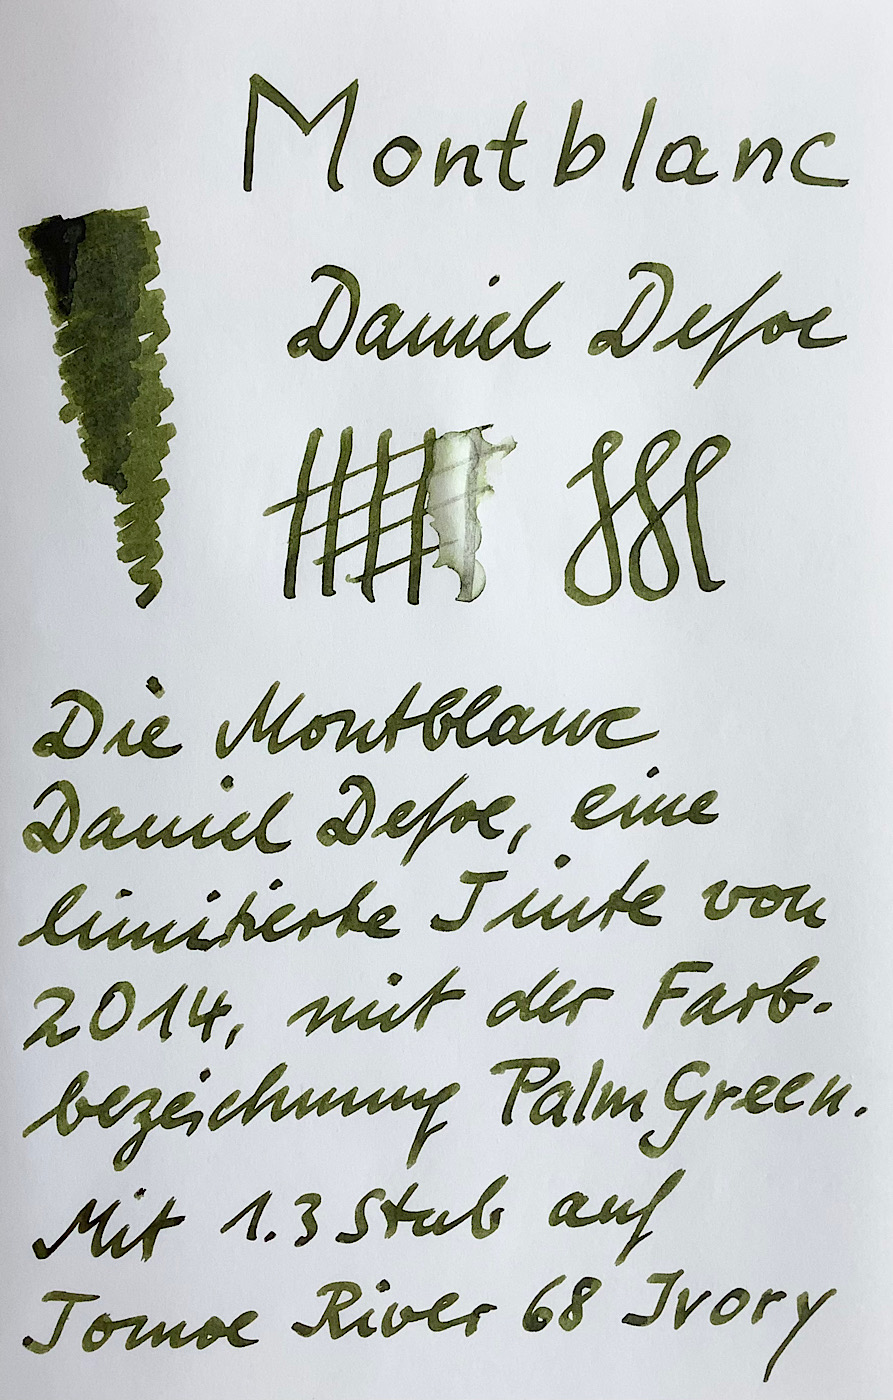 Montblanc
Daniel Defoe
Die Montblanc
Daniel Defoe, eine
limitierte Tinte von
2014, mit der Farb-
bezeichnung Palm Green.
Mit 1.3 Stub auf
Tomoe River 68 Ivory